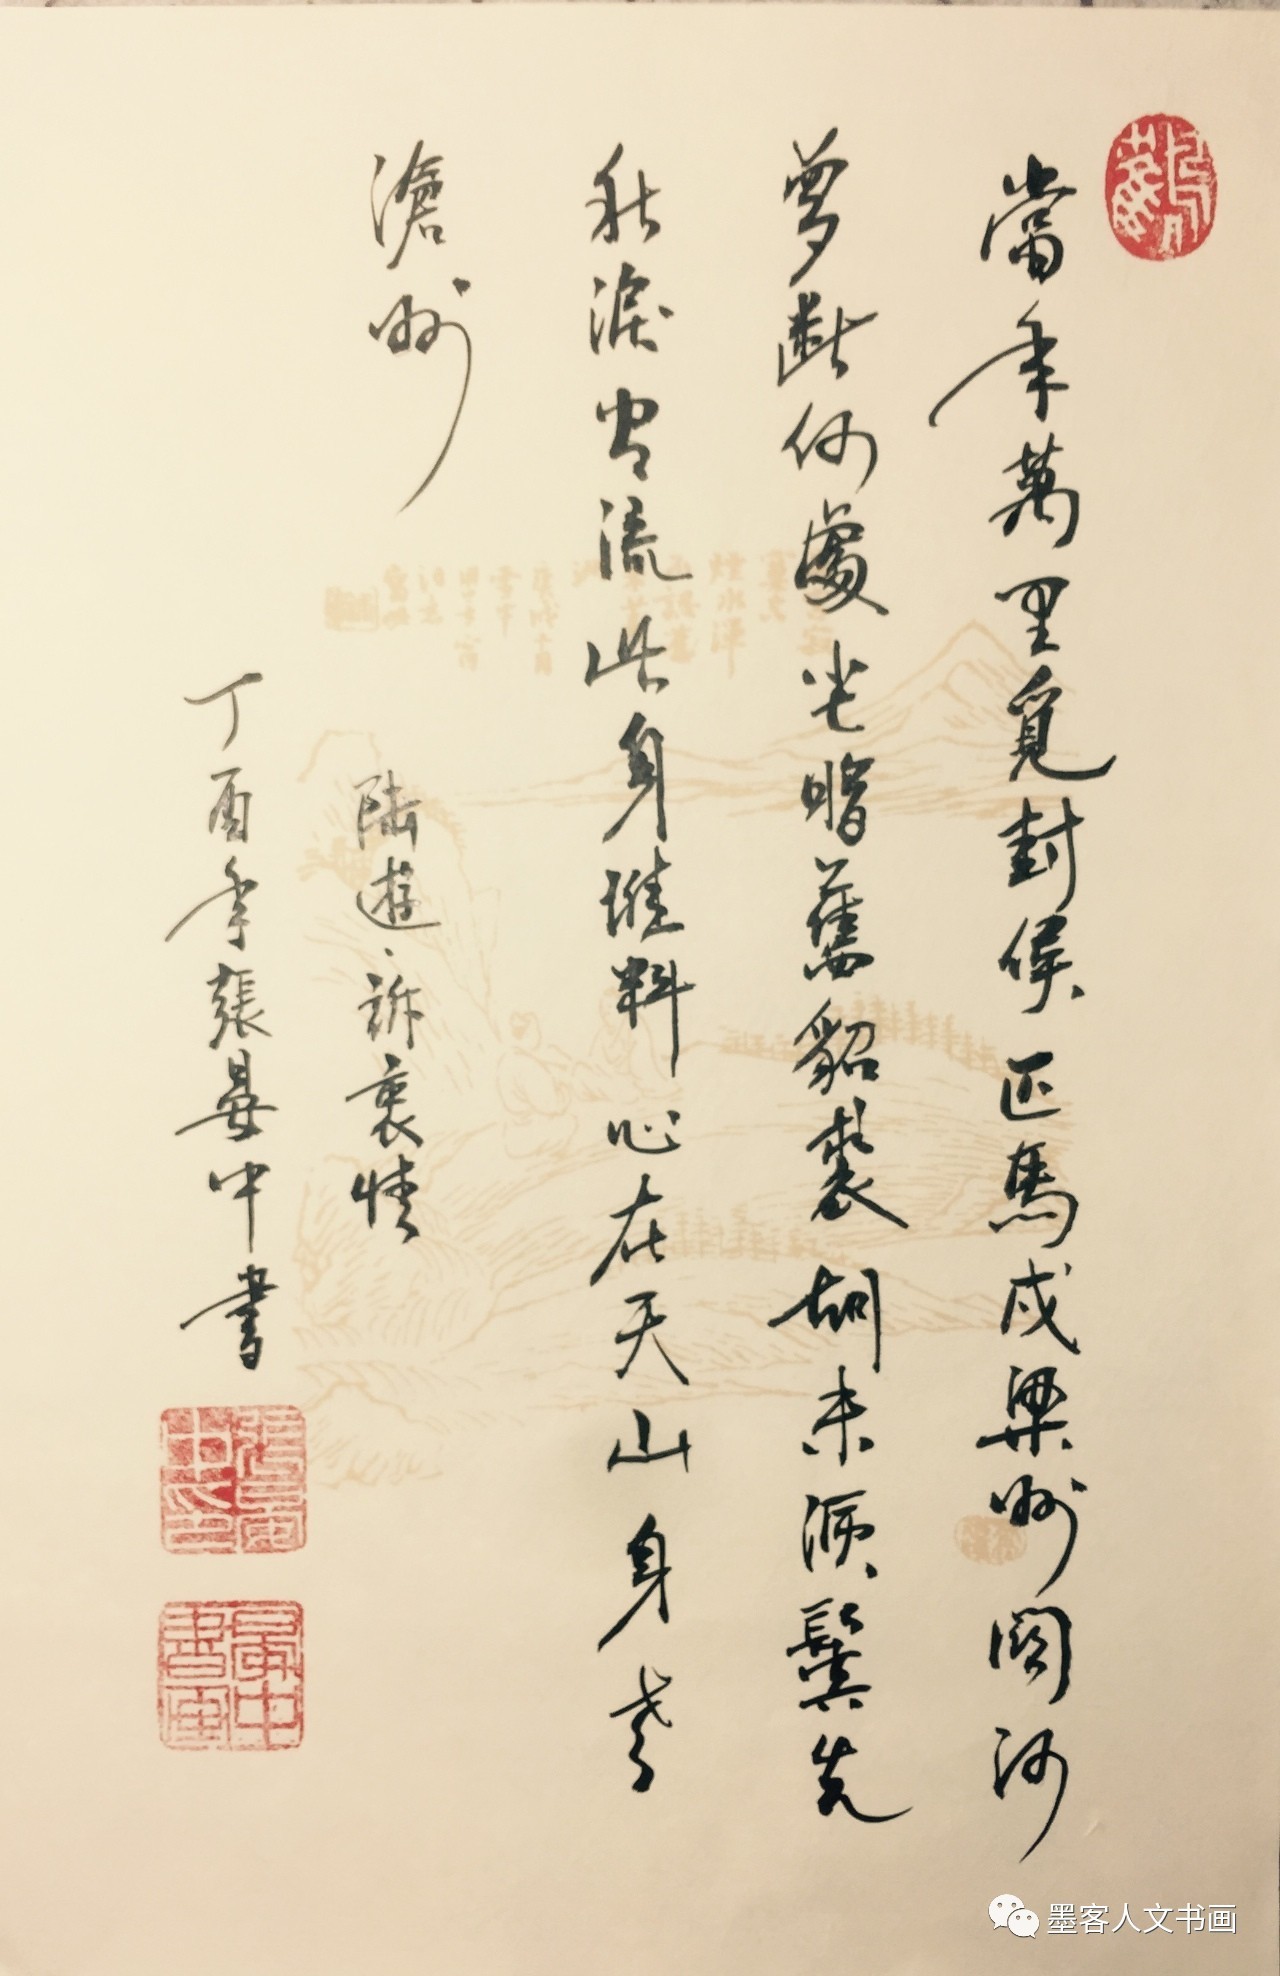 當年萬里覓封侯匹馬戍梁州關河
夢斷何處尘暗舊貂裘胡未滅鬢先
秋淚空流此身誰料心在天山身老
滄州
陸遊·訴衷情
丁酉年張晏中書
墨客人文书画